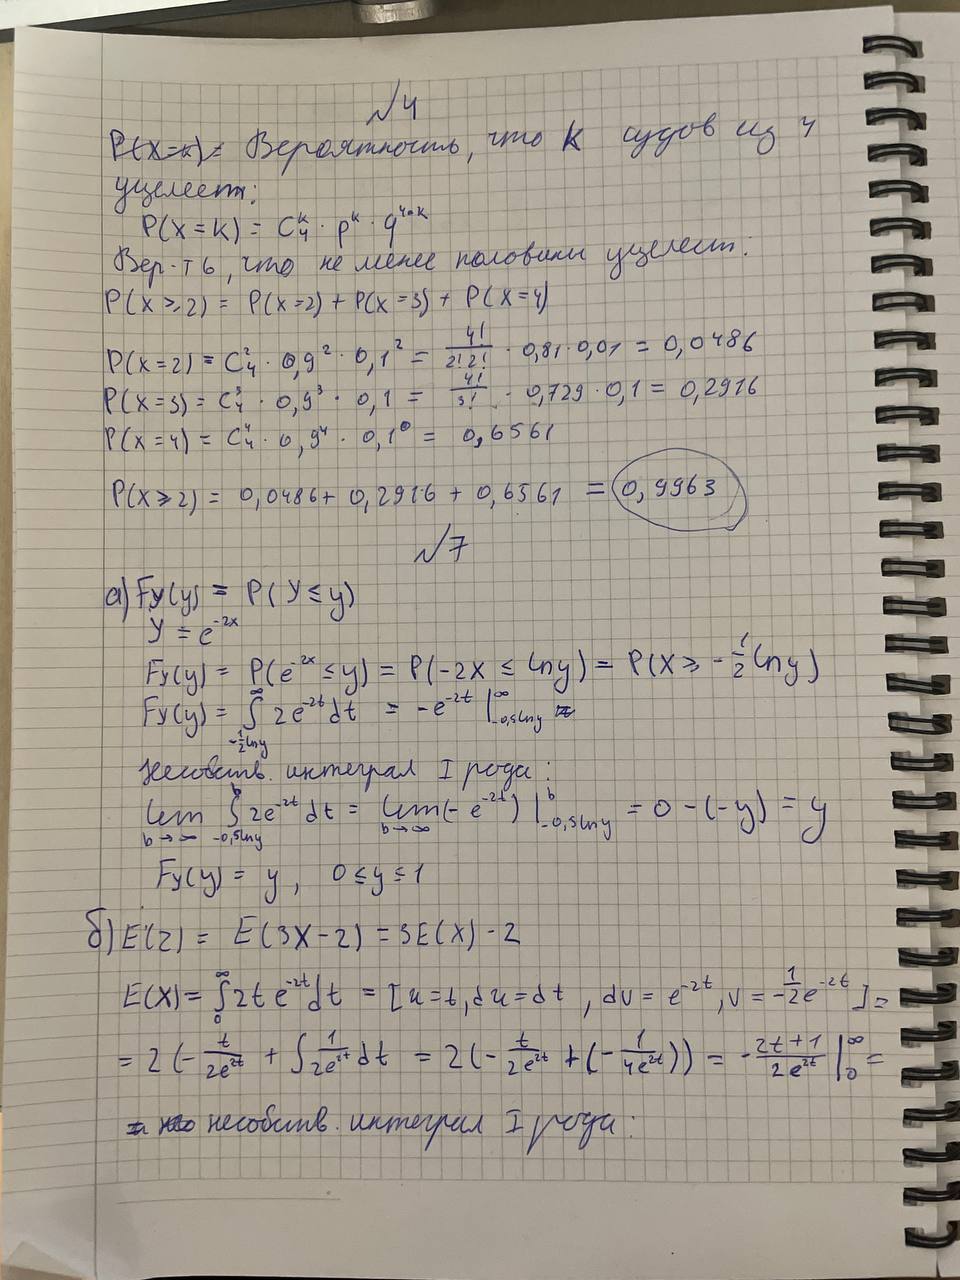 №4
P(X=k) = Вероятность, что k судов из 4
уцелеет:
P(X=k) = C₄ᵏ · pᵏ · q⁴⁻ᵏ
Вер-ть, что не менее половины уцелеет:
P(X≥2) = P(X=2) + P(X=3) + P(X=4)
P(X=2) = C₄² · 0,9² · 0,1² = 4!/(2!2!) · 0,81 · 0,01 = 0,0486
P(X=3) = C₄³ · 0,9³ · 0,1 = 4!/3! · 0,729 · 0,1 = 0,2916
P(X=4) = C₄⁴ · 0,9⁴ · 0,1⁰ = 0,6561
P(X≥2) = 0,0486 + 0,2916 + 0,6561 = 0,9963
№7
а) Fy(y) = P(Y≤y)
Y = e^(-2x)
Fy(y) = P(e^(-2x) ≤ y) = P(-2X ≤ lny) = P(X ≥ -1/2 lny)
Fy(y) = ∫_(-1/2 lny)^∞ 2e^(-2t)dt = -e^(-2t) |_(-0,5lny)^∞
Несобств. интеграл I рода:
lim_(b→∞) ∫_(-0,5lny)^b 2e^(-2t)dt = lim_(b→∞) (-e^(-2t)) |_(-0,5lny)^b = 0 - (-y) = y
Fy(y) = y, 0≤y≤1
б) E(Z) = E(3X-2) = 3E(X) - 2
E(X) = ∫_0^∞ 2t e^(-2t)dt = [u=t, du=dt, dv=e^(-2t), v=-1/2 e^(-2t)] =
= 2(-t/(2e^(2t)) + ∫ 1/(2e^(2t)) dt = 2(-t/(2e^(2t)) + (-1/(4e^(2t)))) = -(2t+1)/(2e^(2t)) |_0^∞ =
несобств. интеграл I рода: